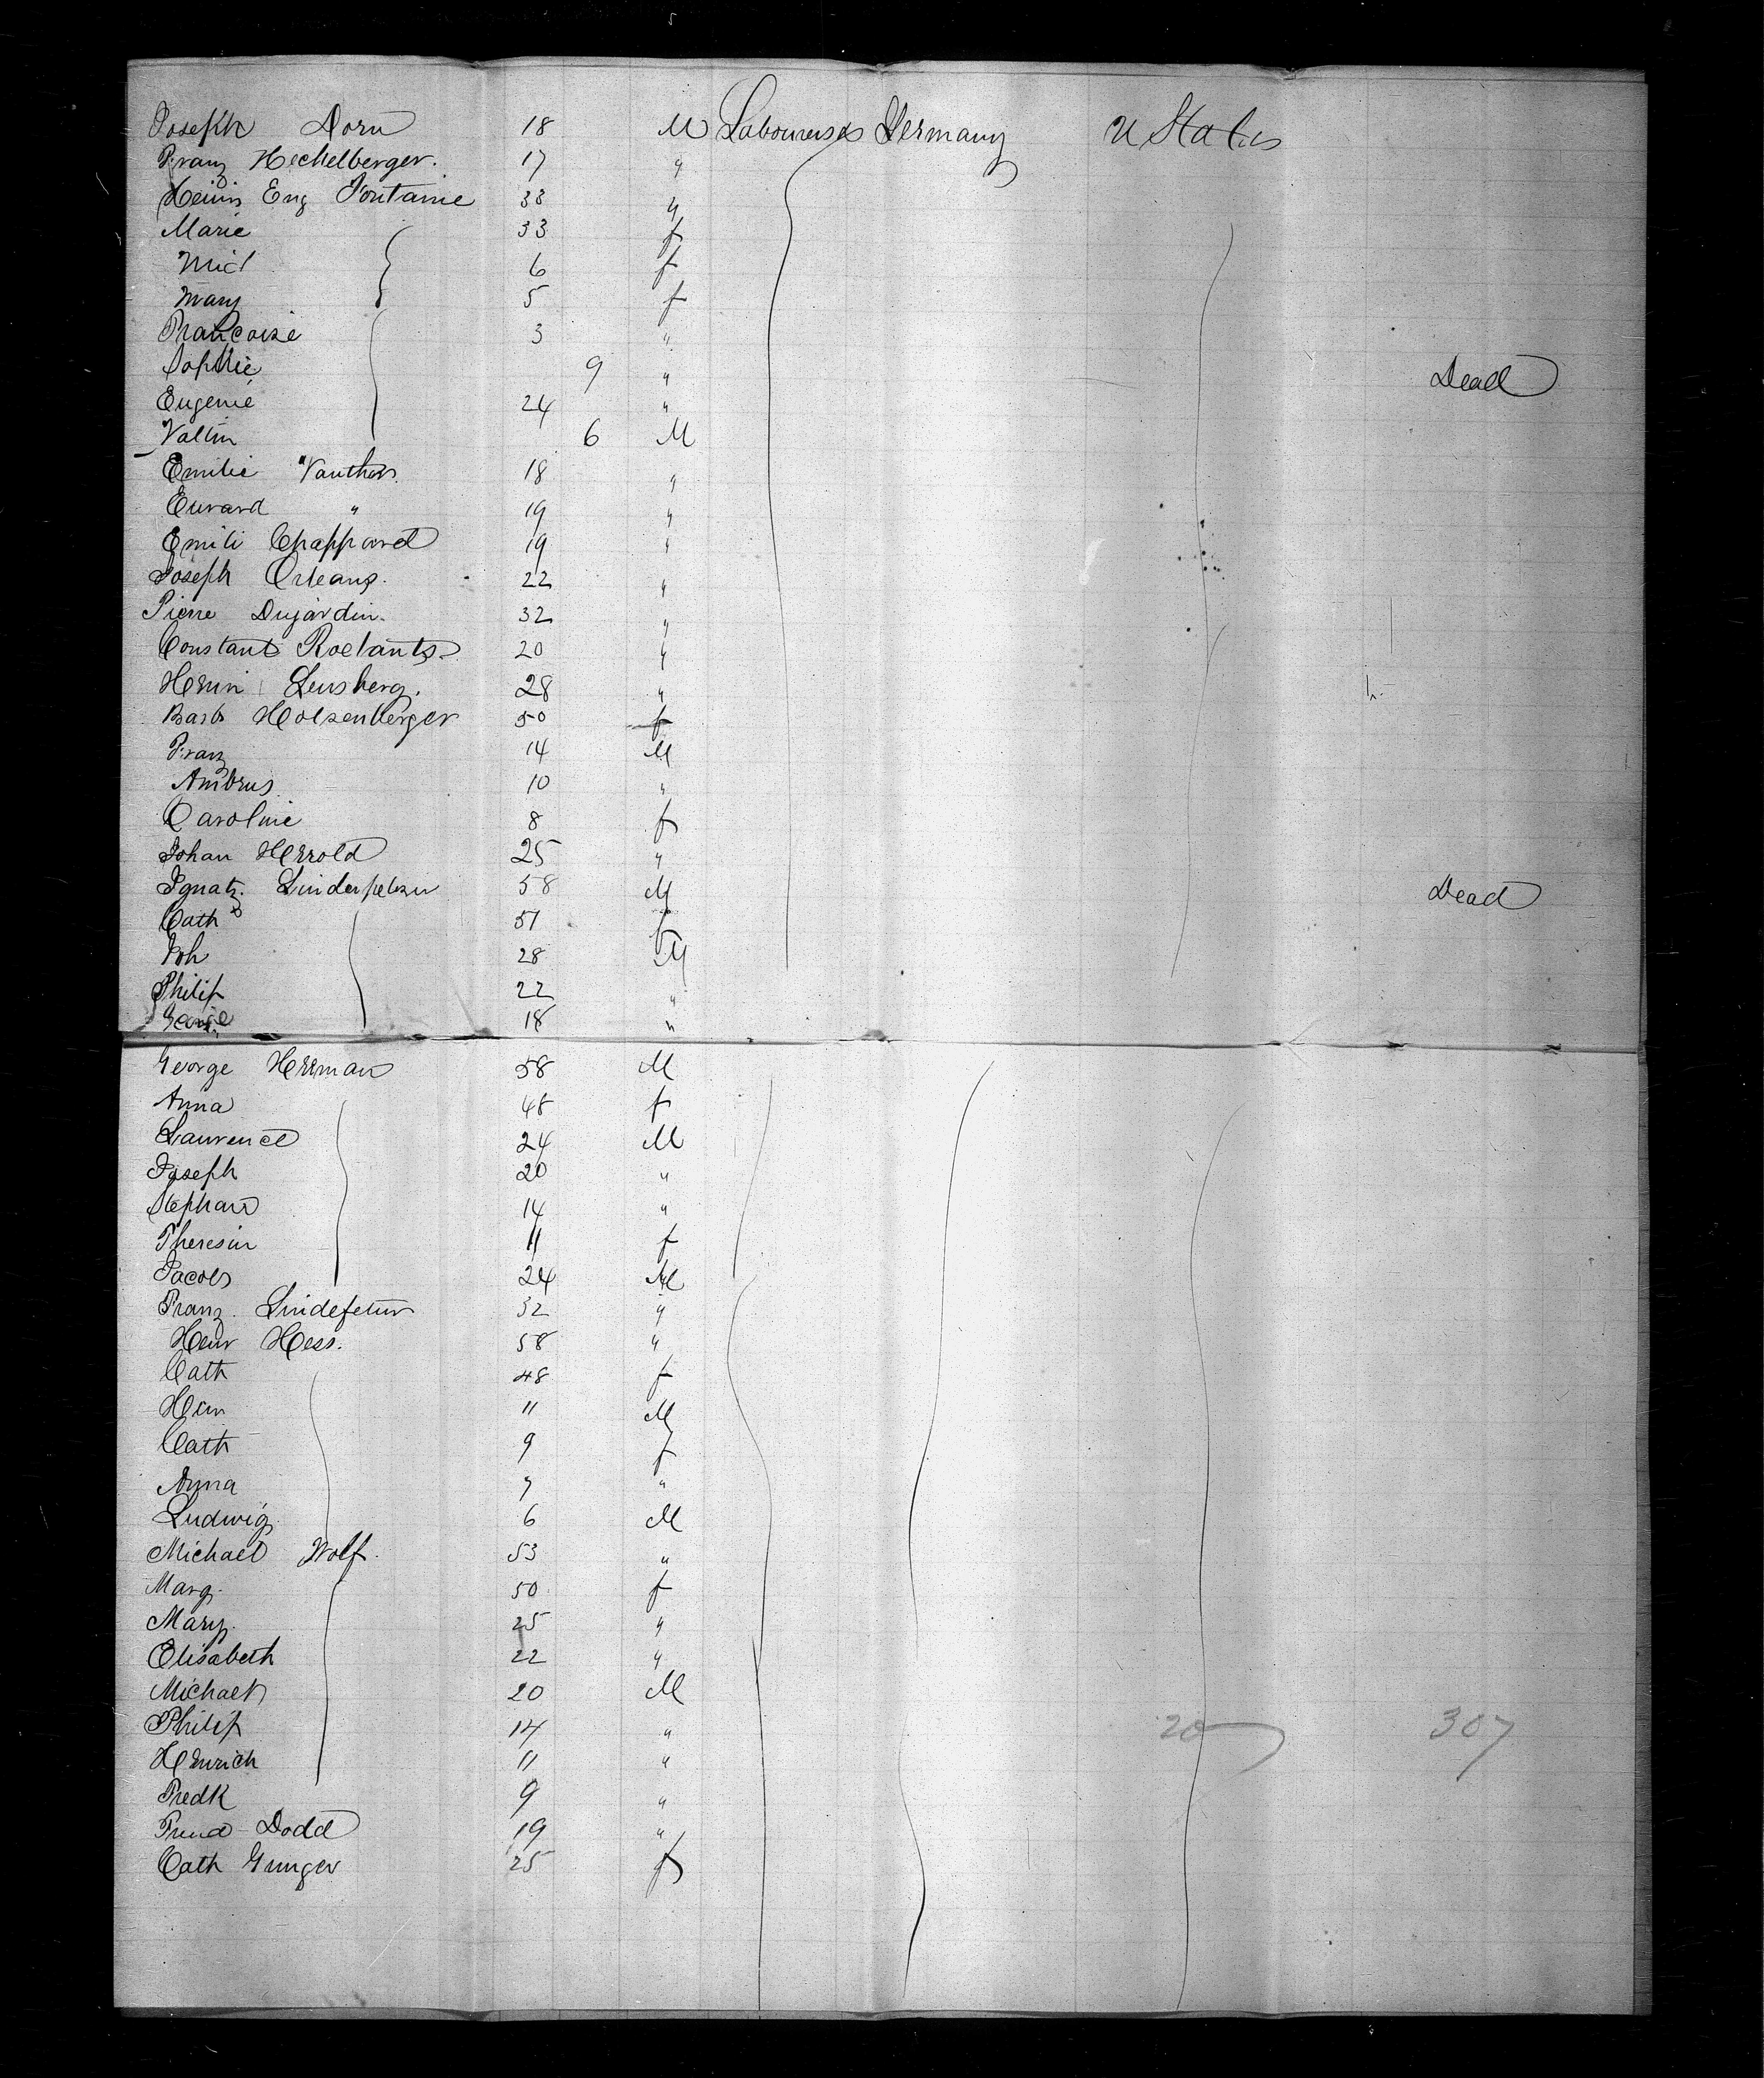 Joseph Dorn 18 M Labourers Germany U States
Franz Hechelberger. 17 "
Henri Eug Fontaine 33 "
Marie 33 f
Mich 6 f
Mary 5 f
Francoise 3 "
Sophie 9 " Dead
Eugenie 24 "
Vallin 6 M
Emilie Vauthers. 18 "
Euvard " 19 "
Emili Chappard 19 "
Joseph Orleans. 22 "
Pierre Dujardin. 32 "
Constant Roelants 20 "
Henri Lensberg. 28 "
Barb Holsenberger 50 f
Franz 14 M
Ambrus 10 "
Caroline 8 f
Johan Herrold 25 "
Ignatz. 58 M Dead
Cath 51 f
Joh 28 M
Philip 22 "
18 "
George Herman 58 M
Anna 48 f
Laurence 24 M
Joseph 20 "
Stephan 14 "
Theresia 11 f
Jacob 24 M
Franz. 32 "
Heinr Hess. 58 "
Cath 48 f
Hein 11 M
Cath 9 f
Anna 7 "
Ludwig 6 M
Michael Wolf. 53 "
Marg. 50 f
Mary. 25 "
Elisabeth 22 "
Michael 20 M
Philip 14 " 20 307
Heinrich 11 "
Fredk 9 "
Dodd 19 "
Cath Gunger 25 f